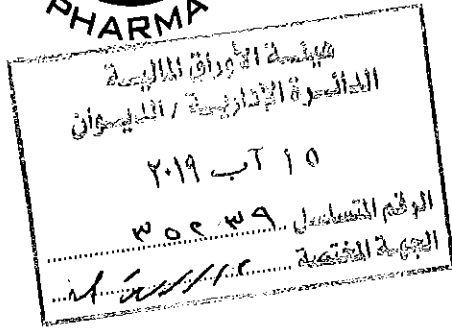 PHARMA
هيئة الأوراق المالية
الدائرة الإدارية / الديوان
١٥ آب ٢٠١٩
الرقم المتسلسل ٣٥٢٣٩
الجهة المختصة